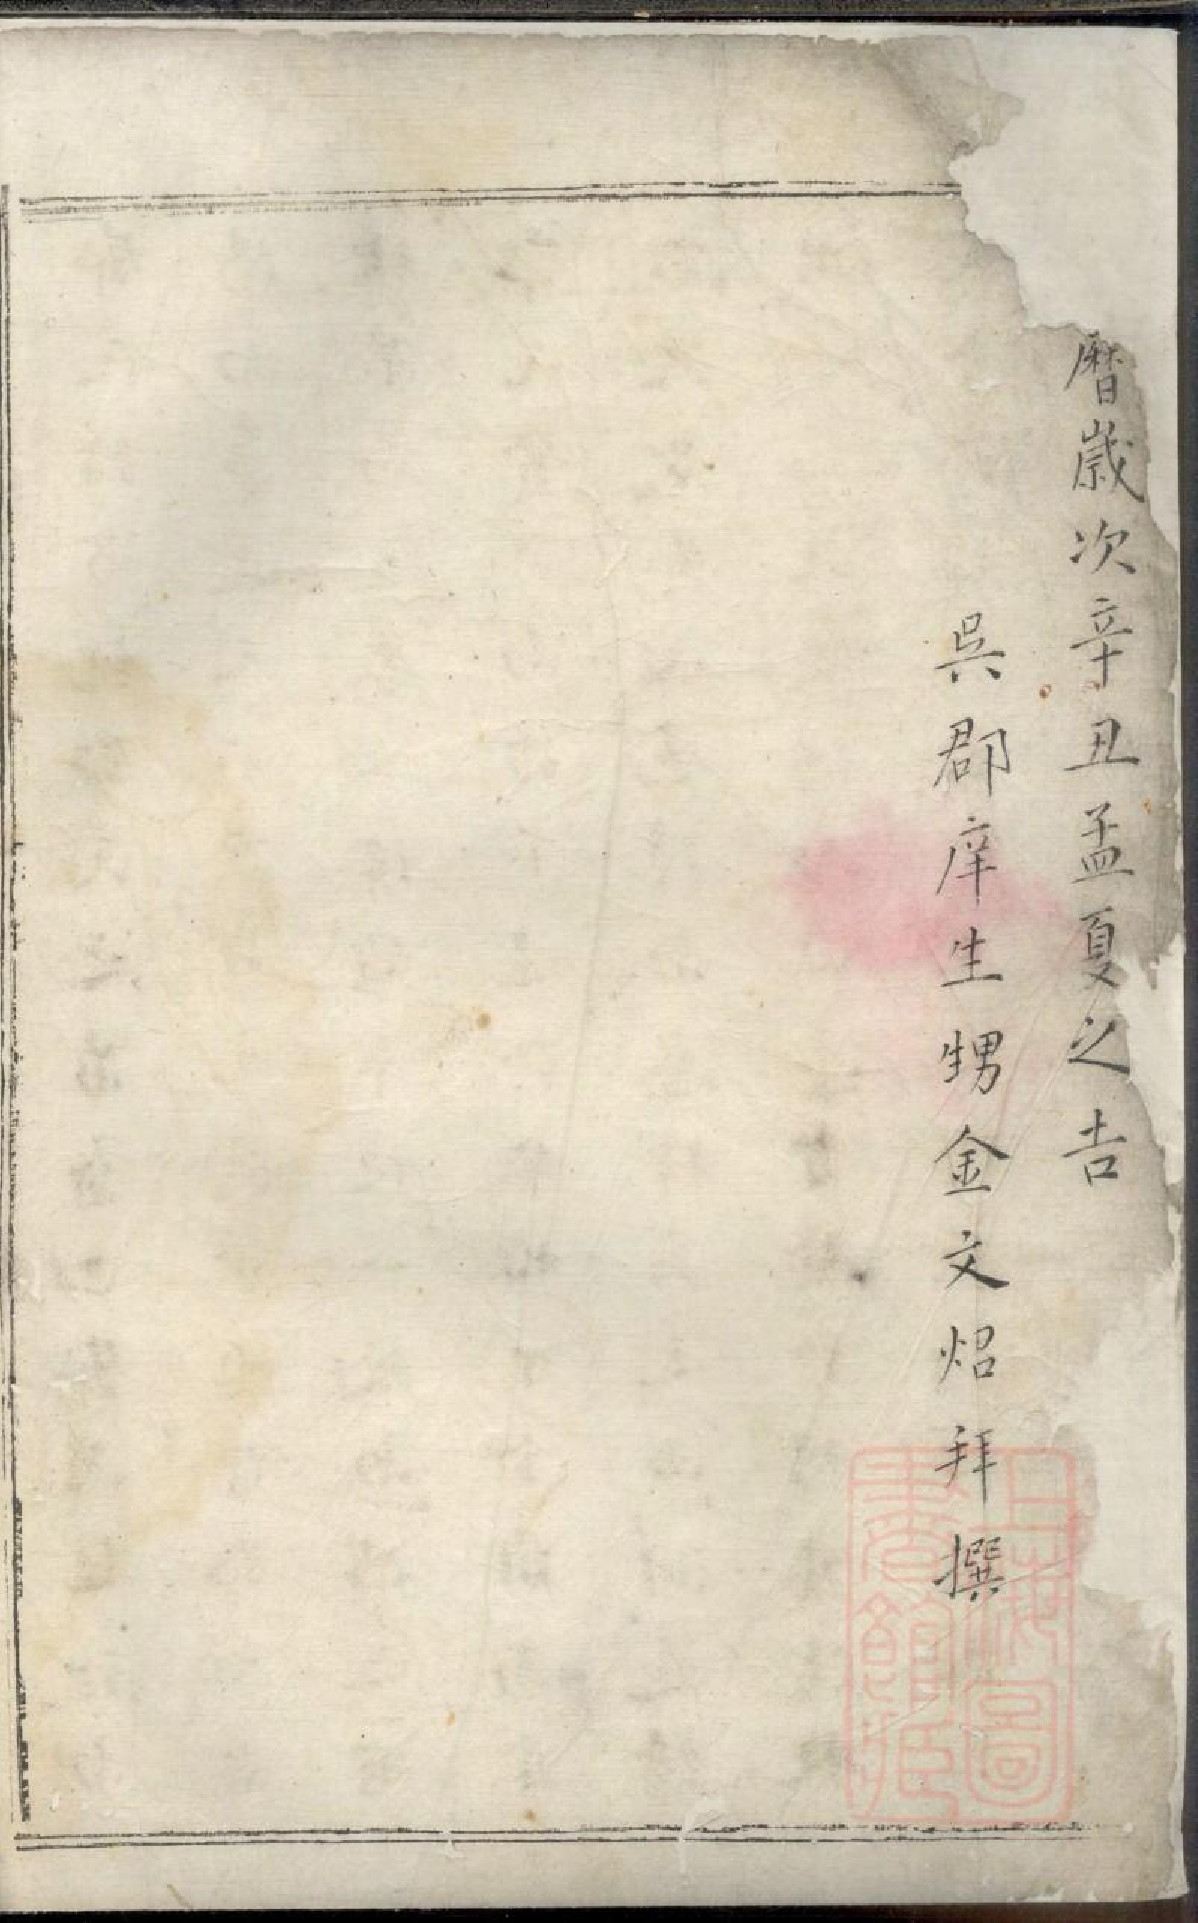 曆歲次辛丑孟夏之吉
吳郡庠生甥金文炤拜撰
上海圖
書館藏